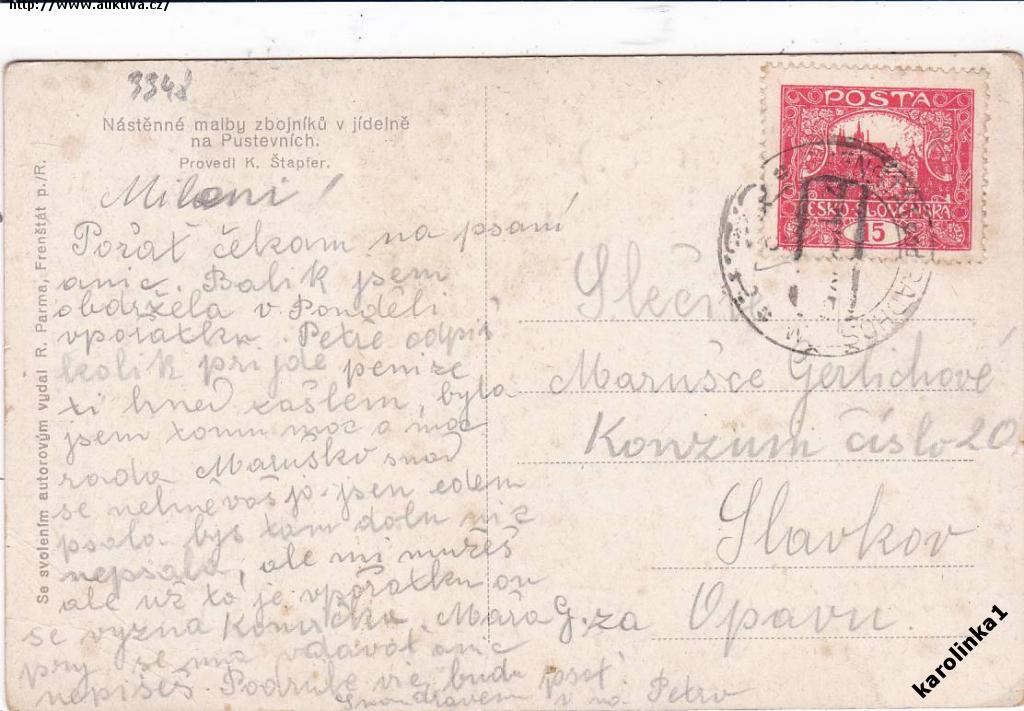 http://www.auktiva.cz/
3348
Nástěnné malby zbojníků v jídelně
na Pustevních.
Provedl K. Štapfer.
Se svolením autorovým vydal R. Parma, Frenštát p./R.
POSTA
ČESKO-SLOVENSKÁ
15
Miloni!
Pořat čekam na psaní
anic. Balik jsem
obdržela v Ponděli
vpořatku. Petře odpiš
kolik prijde penize
ti hned zašlem, byla
jsem tomu moc a moc
rada Maruško snad
se nehněvaš jo jsen
psala bys tam dolu nic
nepsala, ale mi mužeš
ale už to je vpořatku on
se vyzna Konička. Mařa G.
pry se vdavat anic
nepišeš. Podruhe vic budu psat.
v na Petrv
Slečna
Marušce Gerlichové
Konzum číslo 20
Slavkov
za Opavu
karolinka1